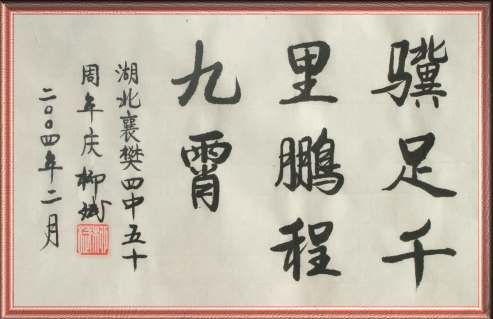 骥足千
里鹏程
九霄
湖北襄樊四中五十
周年庆 柳斌
二〇〇四年二月